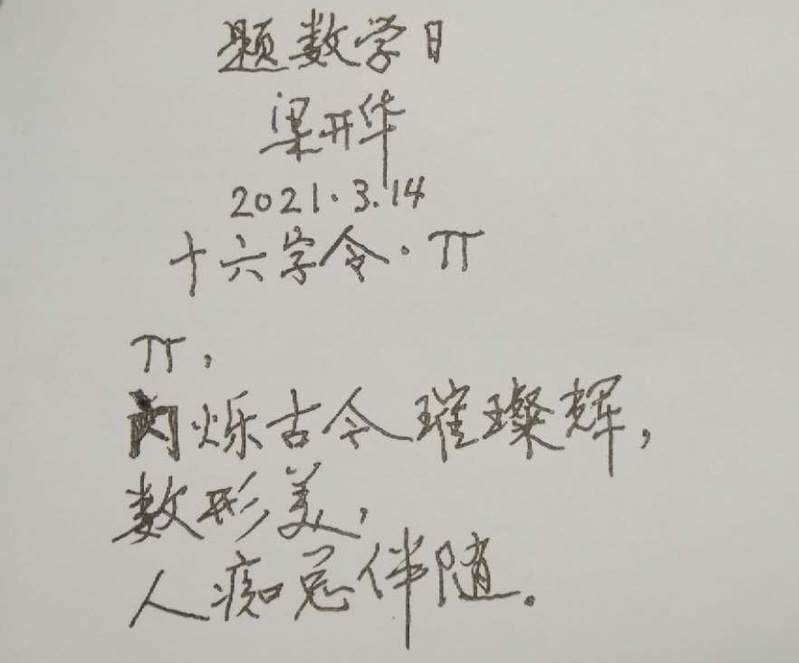 题数学日
梁开华
2021.3.14
十六字令·π
π,
闪烁古今璀璨辉,
数形美,
人痴总伴随。